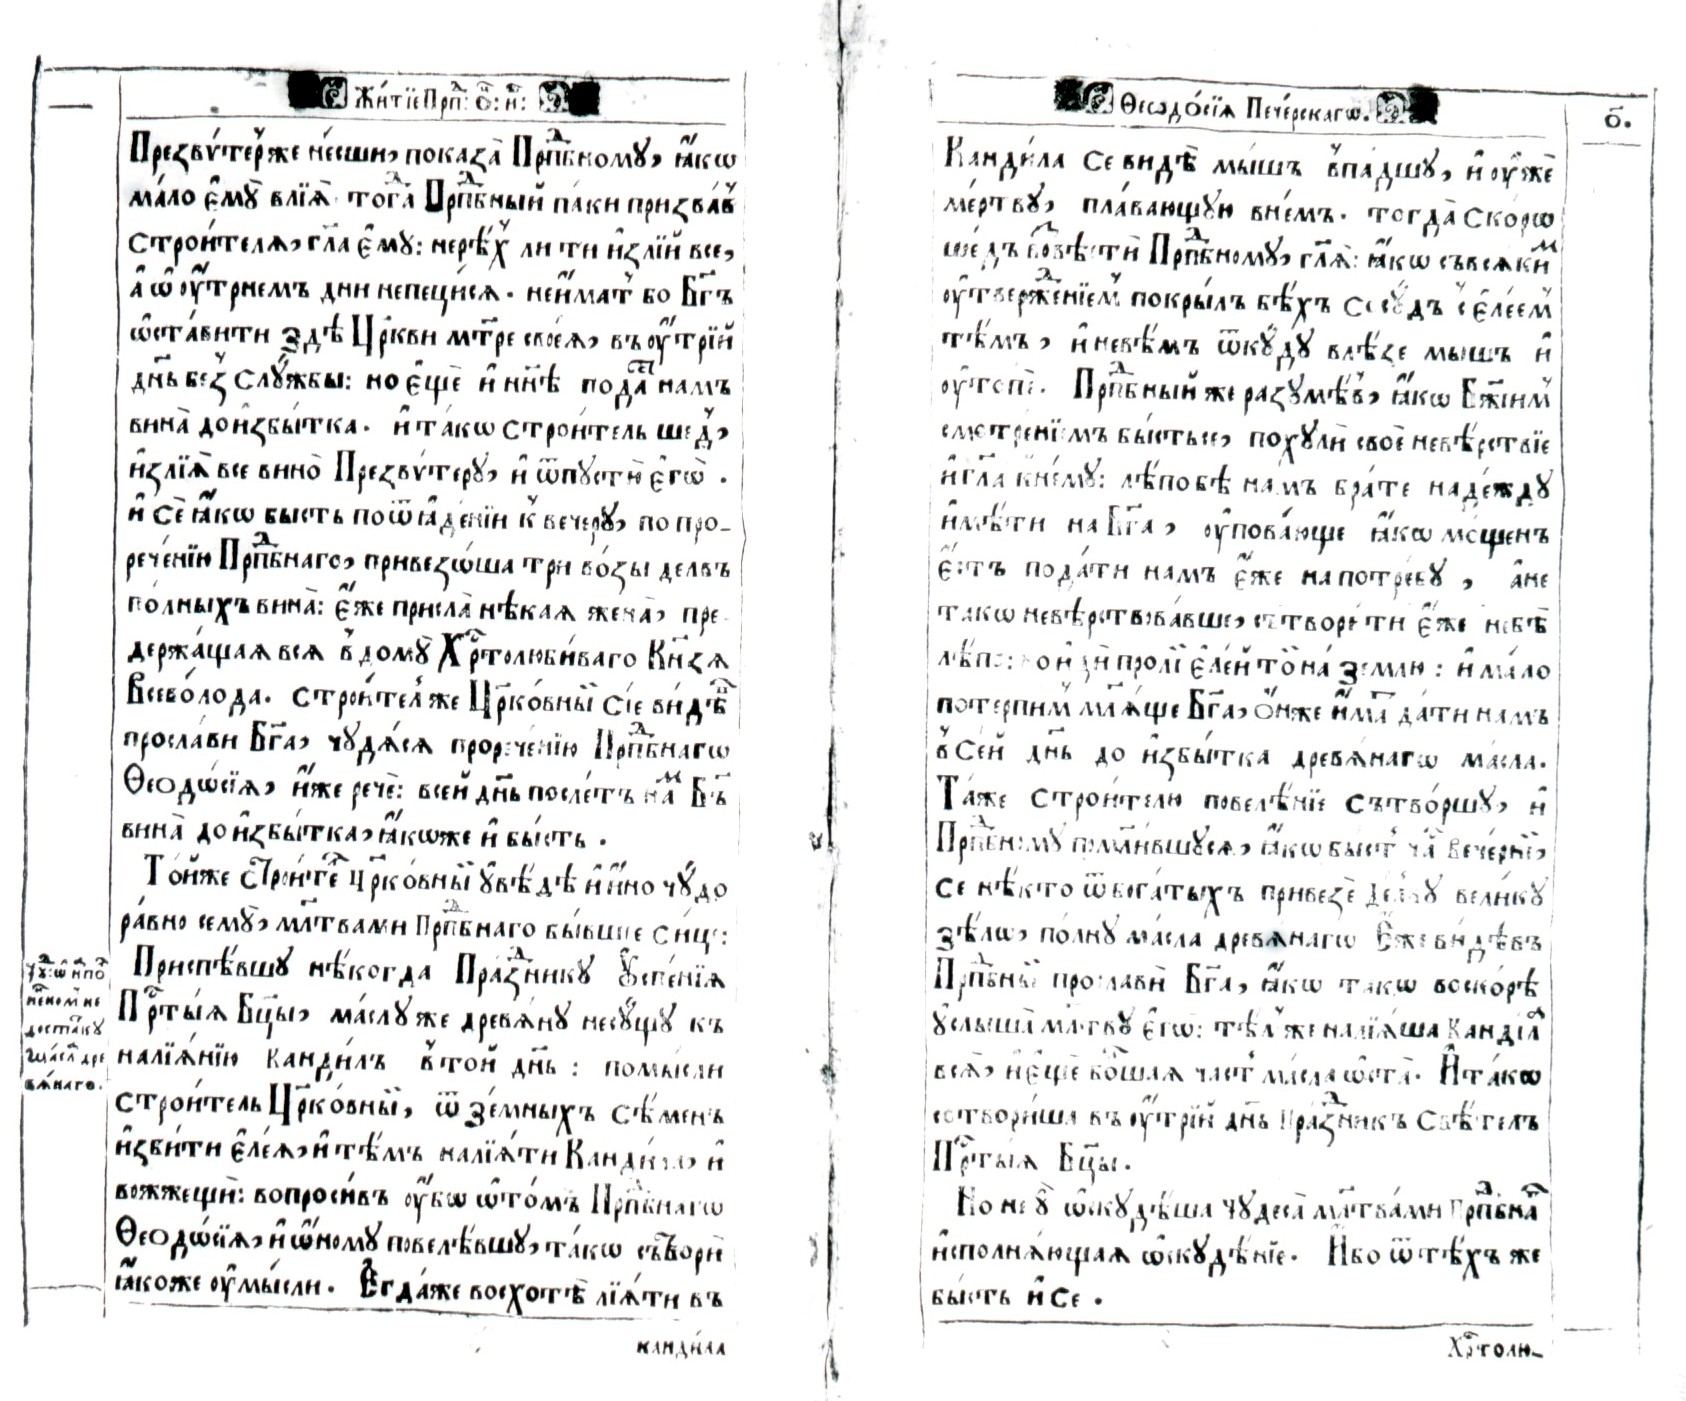 Житїе Прпⷣ: ѿ: н:
Презвѵ́тер̾же не́сши, показа̀ Прпⷣбному, ꙗ҆́кѡ
ма́ло є҆мꙋ̀ влїѧ̀. тогⷣа Прпⷣбный па́ки призва́в̾
Строи́телѧ, гл҃а є҆мꙋ: нерѣ́х̾ ли ти и҆злїй все,
а҆ ѡ҆ оу҆́трнемъ дни непецы́сѧ. не и҆́мат̾ бо Бг҃ъ
ѡ҆ста́вити здѣ̀ Цр҃кви мт҃ре своеѧ̀, въ оу҆́трїй
дн҃ь без̾ Слꙋ́жбы: но є҆щѐ и҆ нн҃ѣ подаⷭ҇ нам̾
вина̀ до и҆збы́тка. и҆ та́кѡ строи́тель ше́д̾,
и҆злїѧ̀ все вино̀ Презвѵ́терꙋ, и҆ ѿпꙋстѝ є҆гѡ̀.
и҆ сѐ ꙗ҆́кѡ бысть по ѿꙗде́нїи к̾ ве́черꙋ, по про-
рече́нїю Прпⷣбнаго, привезѡ́ша три во́зы делвъ
по́лныхъ вина̀: є҆́же присла̀ нѣ́каѧ жена̀, пре-
держа́щаѧ всѧ̀ в̾ домꙋ̀ Хрⷭ҇толюби́ваго Кн҃зѧ
Все́волода. строи́тел̾ же Цр҃ко́вный Сїе ви́дѣⷡ
просла́ви Бг҃а, чꙋдѧ́сѧ прорече́нїю Прпⷣбнагѡ
Ѳеодѡ́сїѧ, и҆́же речѐ: в̾ сей дн҃ь после́тъ наⷨ Бг҃ъ
вина̀ до и҆збы́тка, ꙗ҆́коже и҆ бы́сть.
То́йже строи́теⷧ Цр҃ко́вный ꙋ҆вѣ́дѣ и҆ и҆́но чꙋ́до
ра́вно семꙋ̀, мл҃твами Прпⷣбнаго бы́вшее си́це:
Приспѣ́вшꙋ нѣ́когда Пра́зⷣникꙋ Ѹ҆спе́нїѧ
Прⷭ҇ты́ѧ Бц҃ы, ма́слꙋ же древѧ́нꙋ несꙋ́щꙋ къ
налїѧ́нїю канди́лъ в̾ той дн҃ь: помы́сли
строи́тель Цр҃ко́вный, ѿ зе́мныхъ сѣ́менъ
и҆зби́ти є҆ле́ѧ, и҆ тѣ́мъ налїѧ́ти Канди́ла, и҆
вожжещѝ: вопроси́въ оу҆́бѡ ѡ҆ то́мъ Прпⷣбнагѡ
Ѳеодѡ́сїѧ, и҆ ѡ҆́номꙋ повелѣ́вшꙋ, та́кѡ сътворѝ
ꙗ҆́коже оу҆мы́сли. Є҆гда́же восхотѣ̀ лїѧ́ти въ
канди́ла
Чю́ⷣ: ѡ҆ и҆споⷧ
не́номъ не
доста́ткꙋ
ма́сла дре
вѧ́наго.
Ѳеодо́сїѧ Пече́рскагѡ.
о҃.
Кандила се видѣ̀ мы́шъ в̾па́дшꙋ, и҆ оу҆́же
ме́ртвꙋ, пла́вающꙋю вне́мъ. тогда̀ ско́рѡ
ше́дъ повѣстѝ Прпⷣбномꙋ, гл҃ѧ: ꙗ҆́кѡ съ всѧ́киⷨ
оу҆твержⷣе́нїем̾ покры́лъ бѣ́хъ сосꙋ́дъ с̾ є҆ле́ем̾
тѣ́мъ, и҆ невѣ́мъ ѿкꙋ́дꙋ влѣ́зе мышъ и҆
оу҆топѐ. Прпⷣбный же разꙋмѣ́в̾, ꙗ҆́кѡ Бж҃їим̾
смотре́нїемъ бы́сть се, похꙋлѝ своѐ невѣ́рствїе
и҆ гл҃а к̾ нему: лѣ́по бѣ на́мъ бра́те наде́ждꙋ
и҆мѣ́ти на Бг҃а, оу҆пова́юще ꙗ҆́кѡ мо́щенъ
є҆́стъ пода́ти намъ є҆́же на потре́бꙋ, а҆ не
такѡ невѣ́рствова́вше, сътвори́ти є҆́же не бѣ̀
лѣ́по: но и҆дѝ проле́й є҆ле́й то́й на́ землю: и҆ ма́ло
потерпим̾ мл҃ѧ́ще Бг҃а, ѻ҆́нже и҆́маⷮ да́ти намъ
в̾ Се́й дн҃ь до и҆збы́тка древѧ́нагѡ ма́сла.
Та́же строи́телю повелѣ́нїе сътво́ршꙋ, и҆
Прпⷣбному помл҃и́вшꙋсѧ, ꙗ҆́кѡ бы́ст̾ чаⷭ вече́рнїй,
се нѣ́кто ѿ бога́тыхъ привезѐ делвꙋ вели́кꙋ
зѣ́лѡ, по́лнꙋ ма́сла древѧнагѡ. Є҆́же ви́дѣвъ
Прпⷣбный просла́ви Бг҃а, ꙗ҆́кѡ такѡ воско́рѣ
ꙋ҆слы́ша мл҃твꙋ є҆гѡ̀: тѣ́м̾ же налїѧ́ша Канди́ⷧ
всѧ̀, и҆ є҆щѐ бо́лшаѧ част̾ ма́сла ѡ҆ста̀. И҆ та́кѡ
сотвори́ша въ оу҆́трїй дн҃ь Пра́зⷣникъ Свѣ́телъ
Прⷭ҇ты́ѧ Бц҃ы.
Но не ꙋ҆ ѡ҆скꙋдѣ́ша чꙋдеса̀ мл҃твами Прпⷣбнаⷢ
и҆сполнѧ́ющаѧ ѡ҆скꙋдѣ́нїе. И҆́бо ѿ тѣ́хъ же
бы́сть и҆ се.
Хрⷭ҇толю-